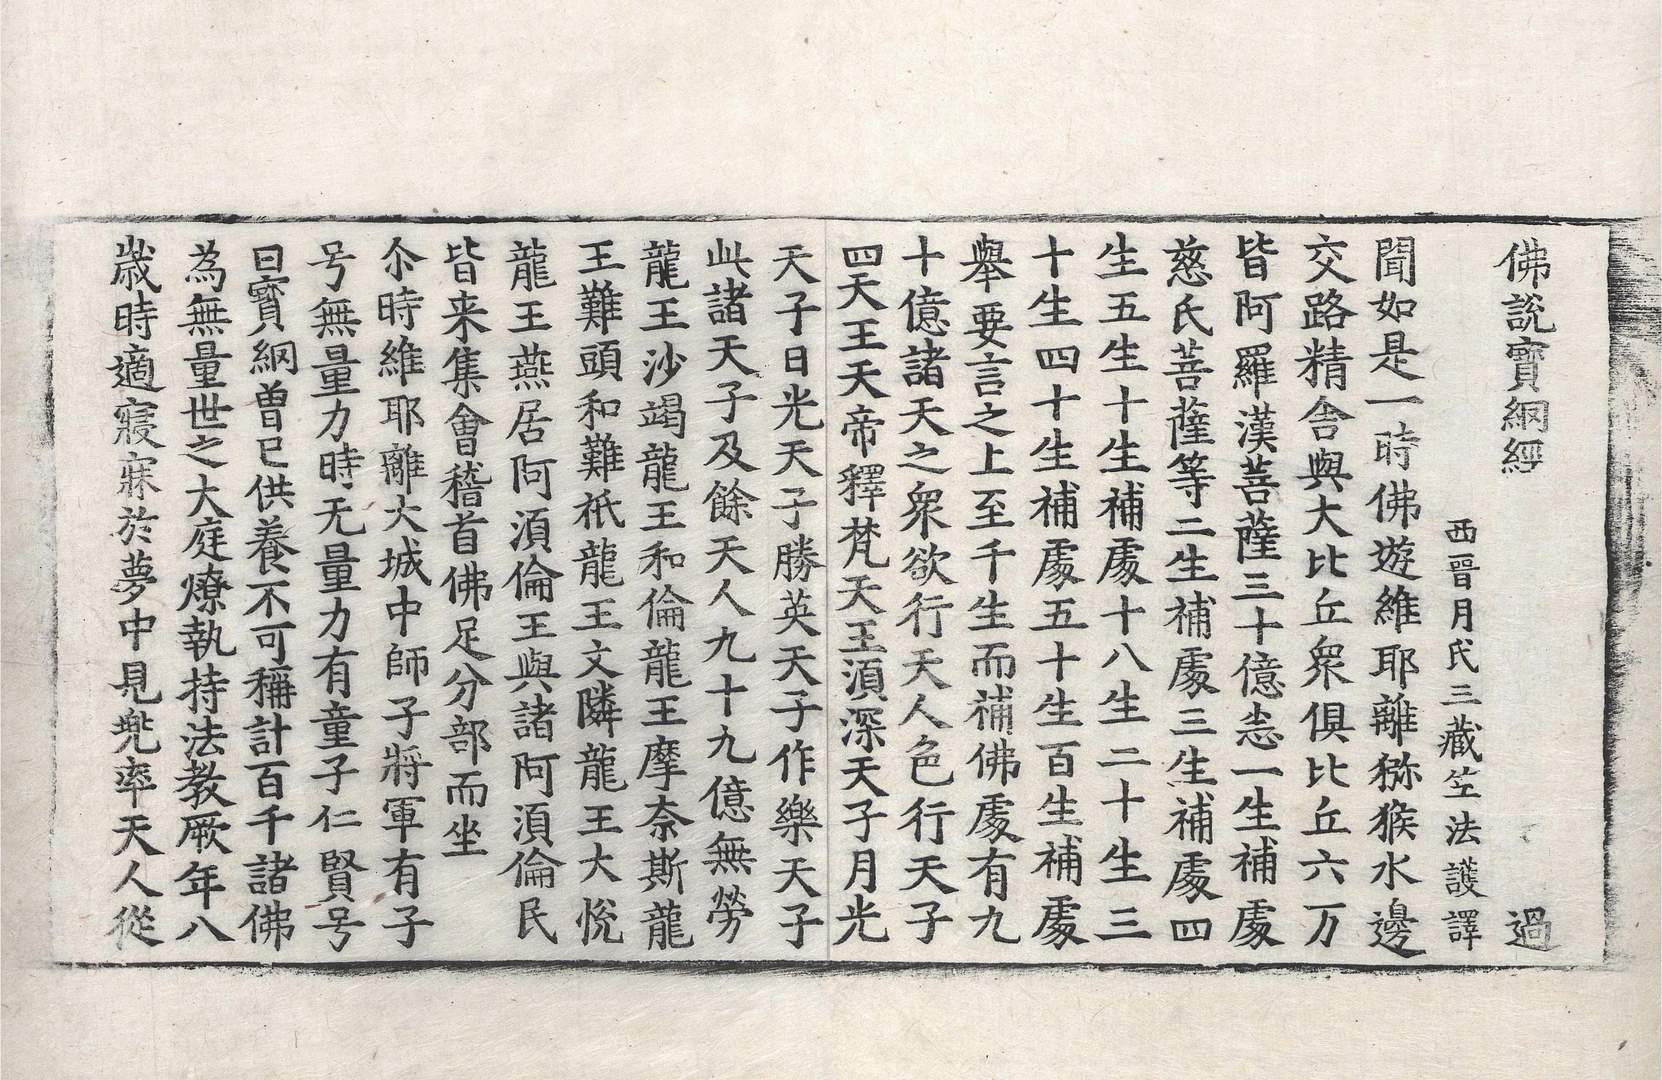 佛說寶網經 過
西晉月氏三藏竺法護譯
聞如是一時佛遊維耶離獼猴水邊
交路精舍與大比丘衆俱比丘六万
皆阿羅漢菩薩三十億悉一生補處
慈氏菩薩等二生補處三生補處四
生五生十生補處十八生二十生三
十生四十生補處五十生百生補處
舉要言之上至千生而補佛處有九
十億諸天之衆欲行天人色行天子
四天王天帝釋梵天王須深天子月光
天子日光天子勝英天子作樂天子
此諸天子及餘天人九十九億無勞
龍王沙竭龍王和倫龍王摩奈斯龍
王難頭和難祇龍王文隣龍王大悅
龍王燕居阿須倫王與諸阿須倫民
皆来集會稽首佛足分部而坐
尒時維耶離大城中師子將軍有子
号無量力時无量力有童子仁賢号
曰寶網曾已供養不可稱計百千諸佛
為無量世之大庭燎執持法教厥年八
歲時適寢寐於夢中見兠率天人從